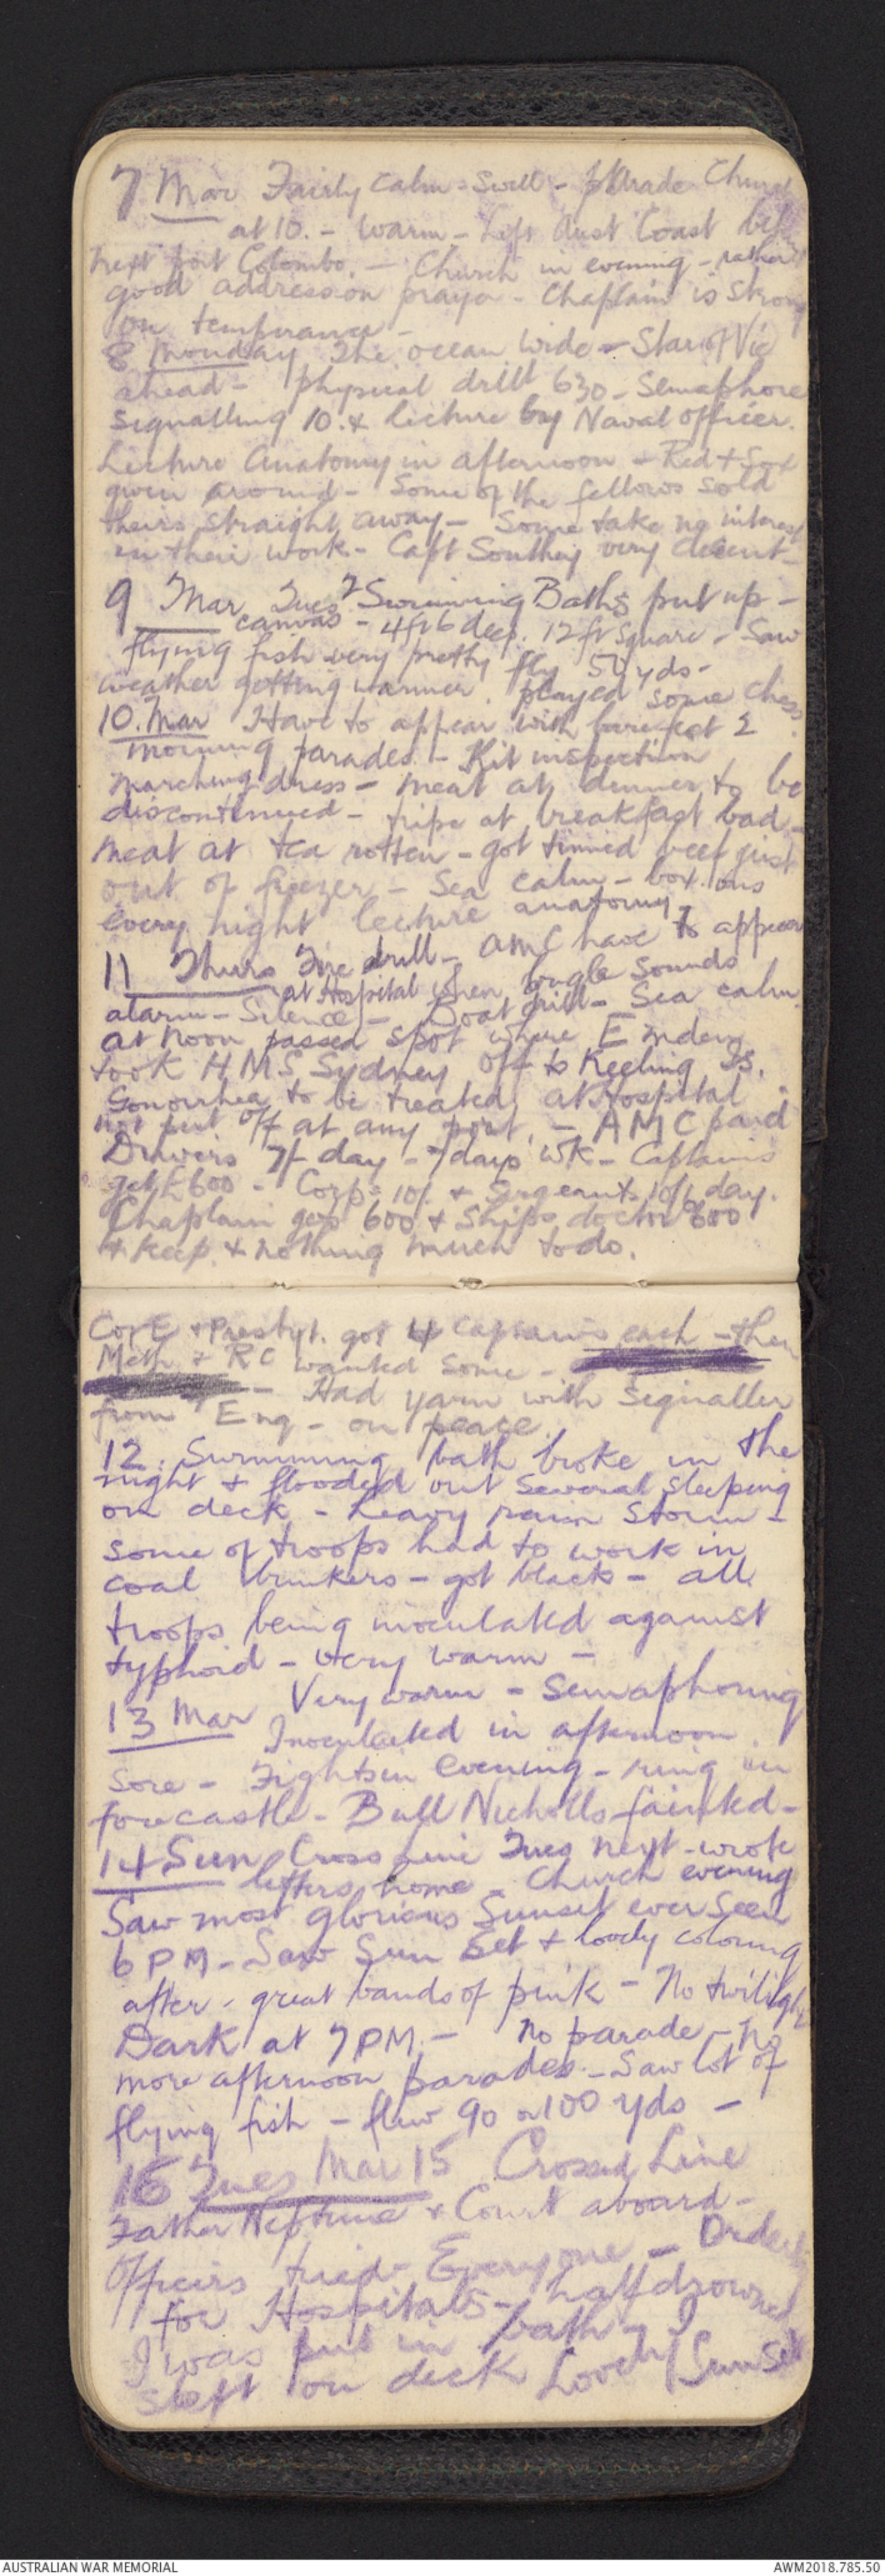 7 Mar Fairly Calm - Swell - parade Church
at 10. - Warm - Left Aust Coast
next port Colombo. - Church in evening - rather
good address on prayer - Chaplain is strong
on temperance -
8 Monday The ocean wide - Star of Vic
ahead - Physical drill 630 - Semaphore
signalling 10. & lecture by Naval officer.
Lecture Anatomy in afternoon - Red + Sox
given around - Some of the fellows sold
theirs straight away - Some take no interest
in their work - Capt Southey very decent -
9 Mar Tues Swimming Baths put up -
canvas - 4ft 6 deep. 12 ft square - Saw
flying fish very pretty fly 50 yds -
weather getting warmer. played some chess.
10. Mar Have to appear with bare feet 2
morning parades. - Kit inspection
marching dress - meat at dinner to be
discontinued - tripe at breakfast bad -
meat at tea rotten - got tinned beef just
out of freezer - Sea calm - box ons
every night lecture anatomy -
11 Thurs Fire drill - AMC have to appear
at Hospital when bugle sounds
alarm - Silence - Boat drill - Sea calm
at noon passed spot where Emden
took HMS Sydney off to Keeling Is.
Gonorrhea to be treated at Hospital
not put off at any port. - AMC paid
Drivers 7/- day - 7 days wk - Captains
get £600 - Corps 10/- & Sergeants 10/6 day.
Chaplain gets 600 & Ships doctor 600
& keep & nothing much to do.
C of E & Presbyt. got 4 Captains each - then
Meth & RC wanted some -
- Had yarn with signaller
from Eng - on peace.
12. Swimming bath broke in the
night & flooded out several sleeping
on deck - heavy rain storm -
some of troops had to work in
coal bunkers - got black - all
troops being inoculated against
typhoid - very warm -
13 Mar Very warm - Semaphoring
Inoculated in afternoon.
Sore - Fights in evening - ring in
forecastle - Bull Nicholls fainted -
14 Sun Cross Line Tues next - wrote
letters home - Church evening
Saw most glorious Sunset ever seen
6 PM - Saw Sun Set & lovely coloring
after - great bands of pink - No twilight
Dark at 7PM. - No parade - no
more afternoon parades. - Saw lot of
flying fish - flew 90 or 100 yds -
16 Tues Mar 15 Crossed Line
Father Neptune & Court aboard -
Officers tried - Everyone - Orderly
for Hospitals - half drowned
I was put in bath - I
slept on deck Lovely Sunset
AUSTRALIAN WAR MEMORIAL
AWM2018.785.50